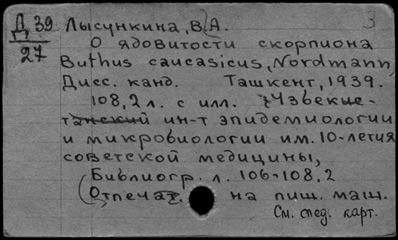 Д 39 Лысункина, В. А. 3
27
О ядовитости скорпиона
Buthus caucasicus, Nordmann,
Дисс. канд. Ташкент, 1939.
108,2 л. с илл. Узбекис-
танский ин-т эпидемиологии
и микробиологии им. 10-летия
советской медицины,
Библиогр. л. 106-108.2
(Отпечат. на пиш. маш.
См. след. карт.